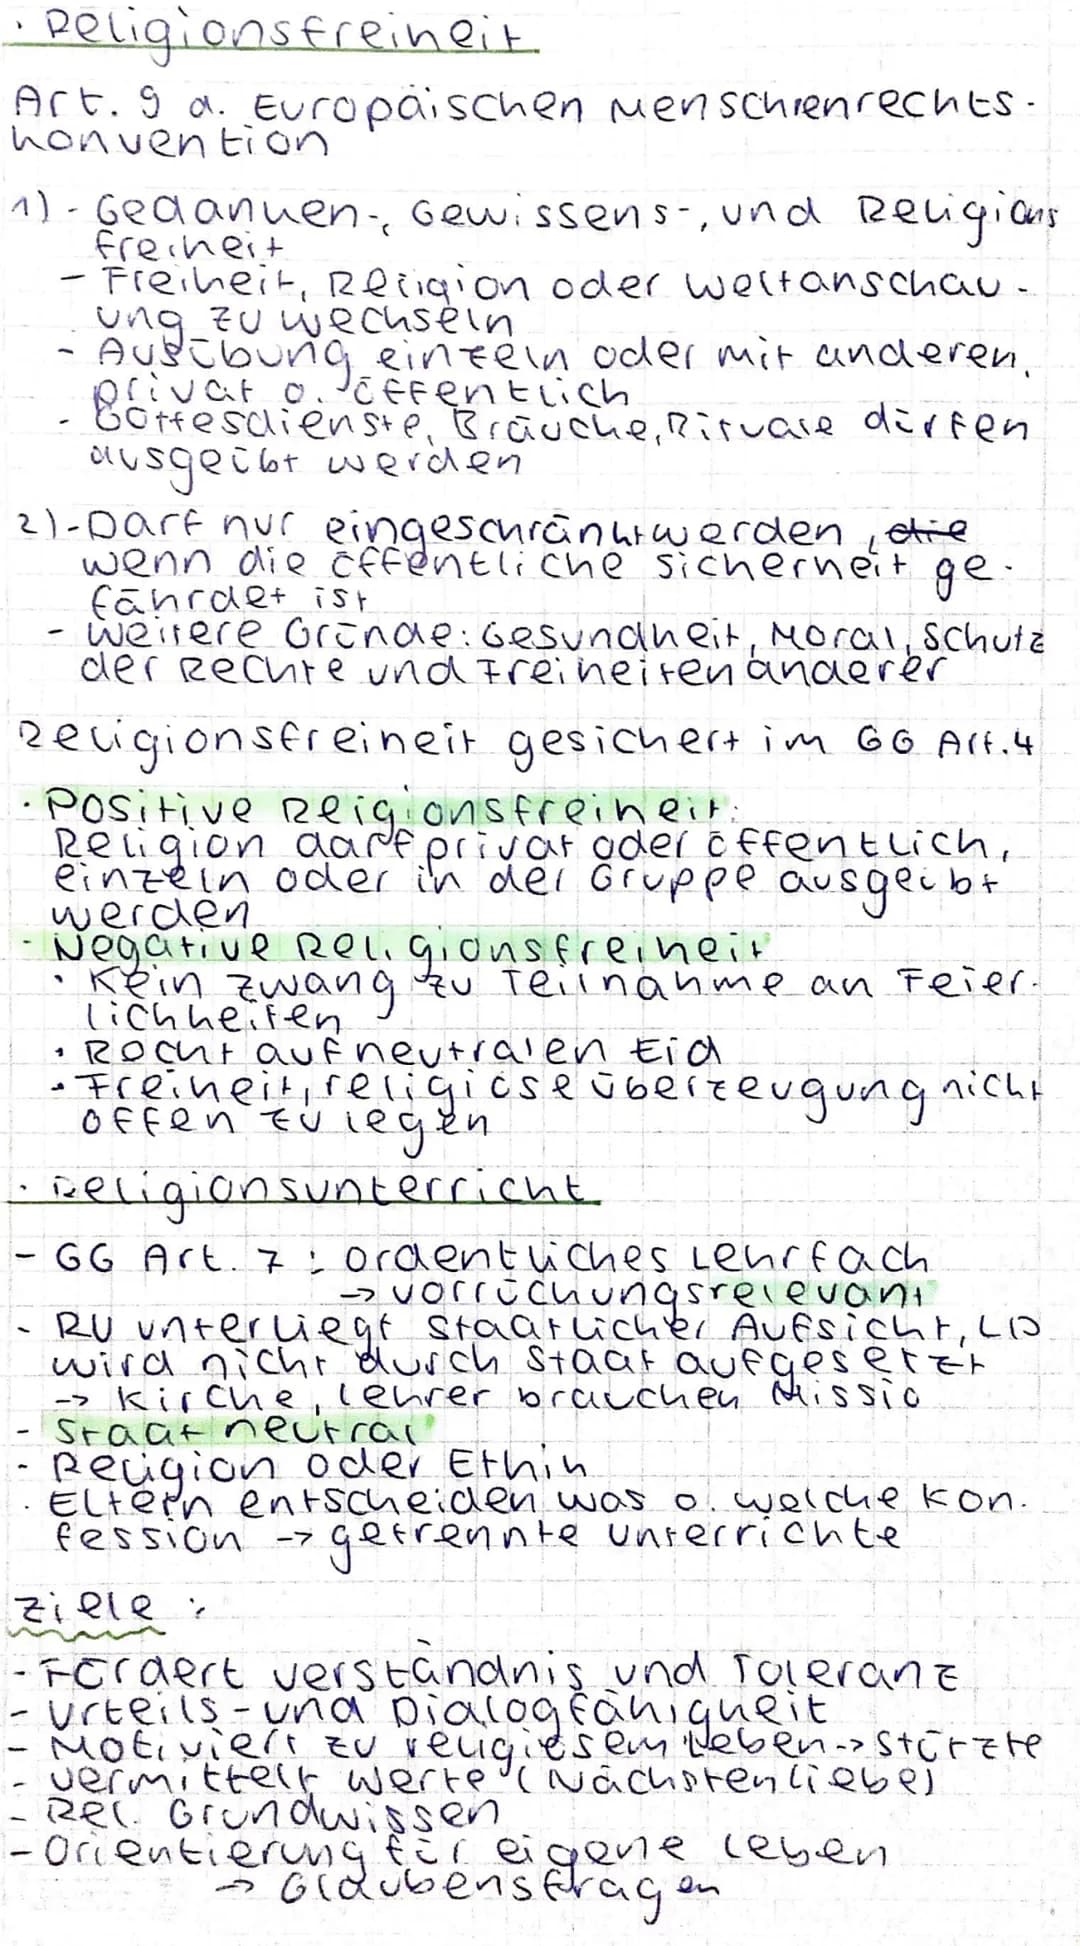 · Religionsfreiheit
Art. 9 d. Europäischen Menschenrechts-
konvention
1) - Gedanken-, Gewissens-, und Religions
freiheit
- Freiheit, Religion oder Weltanschau-
ung zu wechseln
- Ausübung einzeln oder mit anderen,
privat o. öffentlich
- Gottesdienste, Bräuche, Rituale dürfen
ausgeübt werden
2) - Darf nur eingeschränkt werden, die
wenn die öffentliche Sicherheit ge-
fährdet ist
- Weitere Gründe: Gesundheit, Moral, Schutz
der Rechte und Freiheiten anderer
Religionsfreiheit gesichert im GG Art. 4
· Positive Religionsfreiheit:
Religion darf privat oder öffentlich,
einzeln oder in der Gruppe ausgeübt
werden
- Negative Religionsfreiheit
· Kein Zwang zu Teilnahme an Feier-
lichkeiten
· Recht auf neutralen Eid
· Freiheit, religiöse Überzeugung nicht
offen zu legen
· Religionsunterricht
- GG Art. 7: ordentliches Lehrfach
→ vorrückungsrelevant
- RU unterliegt staatlicher Aufsicht, LP
wird nicht durch Staat aufgesetzt
→ Kirche, Lehrer brauchen Missio
- Staat neutral
- Religion oder Ethik
· Eltern entscheiden was o. welche Kon-
fession → getrennte Unterrichte
Ziele:
- Fördert Verständnis und Toleranz
- Urteils- und Dialogfähigkeit
- Motiviert zu religiösem Leben → stürzte
- Vermittelt Werte (Nächstenliebe)
- Rel. Grundwissen
- Orientierung für eigene Leben
→ Glaubensfragen